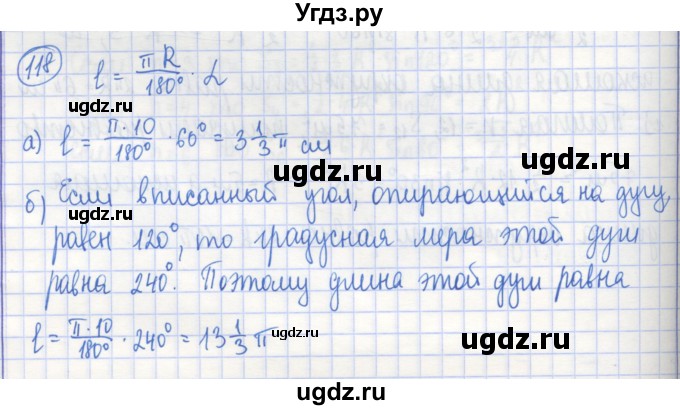 Угдз.ру
118
l = πR/180° · L
ugdz.ru ugdz.ru
а) l = π·10/180° · 60° = 3 1/3 π см
ugdz.ru
б) Если вписанный угол, опирающийся на дугу,
равен 120°, то градусная мера этой дуги
равна 240°. Поэтому длина этой дуги равна
ugdz.ru ugdz.ru
l = π·10/180° · 240° = 13 1/3 π
ugdz.ru
ugdz.ru